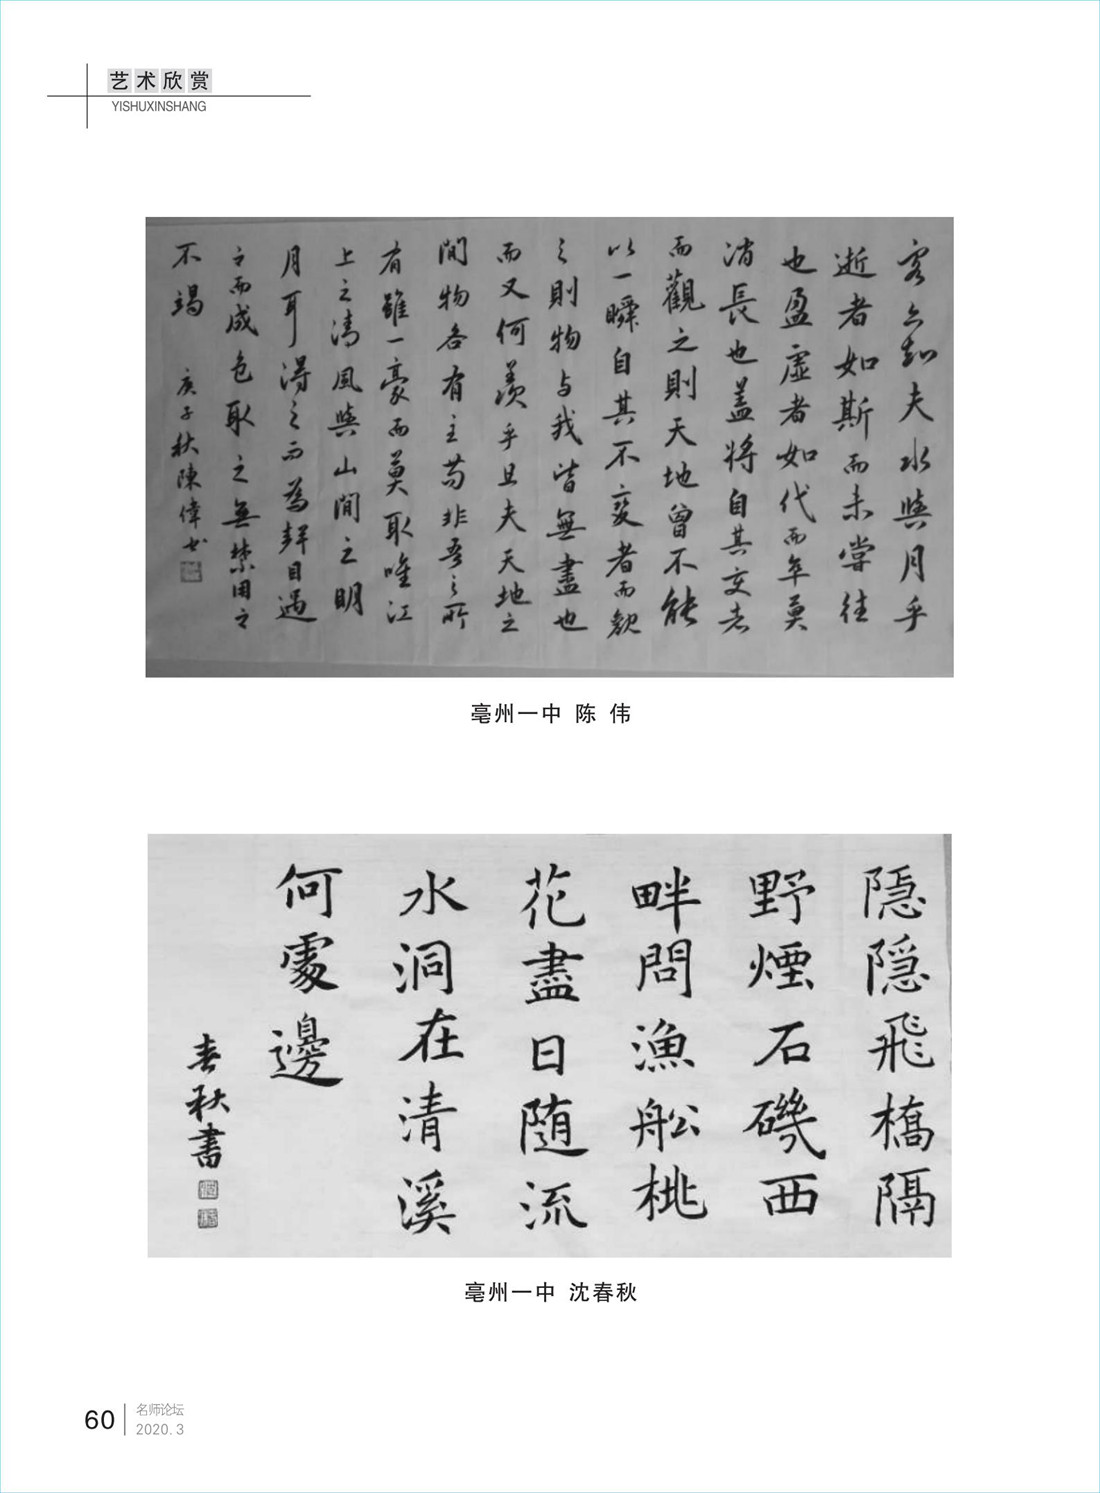 艺术欣赏
YISHUXINSHANG
客亦知夫水與月乎
逝者如斯而未嘗往
也盈虛者如代而卒莫
消長也盖將自其变者
而觀之則天地曾不能
以一瞬自其不变者而觀
之則物与我皆無盡也
而又何羨乎且夫天地之
間物各有主苟非吾之所
有雖一豪而莫取唯江
上之清風與山間之明
月耳得之而為聲目遇
之而成色取之無禁用之
不竭
庚子秋陳偉书
亳州一中 陈 伟
隱隱飛橋隔
野煙石磯西
畔問漁船桃
花盡日随流
水洞在清溪
何處邊
春秋書
亳州一中 沈春秋
60
名师论坛
2020.3